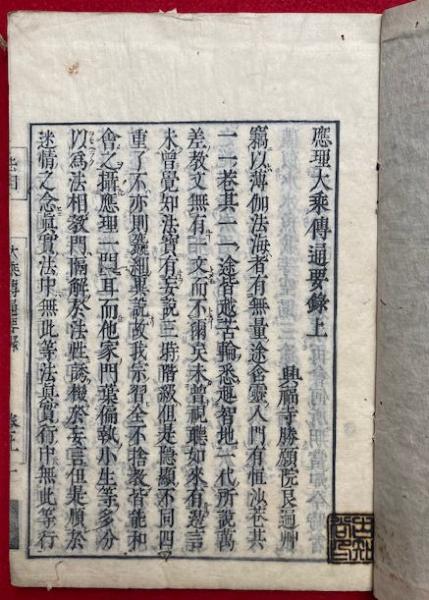 應理大乘傳通要錄上
興福寺勝願院良遍
竊以薄伽法海者有無量途含靈入門有恒沙巷其
一一巷其一一途皆越苦輪悉通智地一代所說萬
差教文無有一文而不爾矣未曾視聽如來有虛言
未曾覺知法寶有妄說三時階級但是隱顯不同四
重了不亦則 說故我宗習全不捨教皆能和
會之攝應理一門耳而他家門葉偏執小生等多分
以爲法相教門隔解於法性誘機於妄言但是順於
迷情之念眞實法中無此等法眞實行中無此等行
大乘傳通要錄
卷上